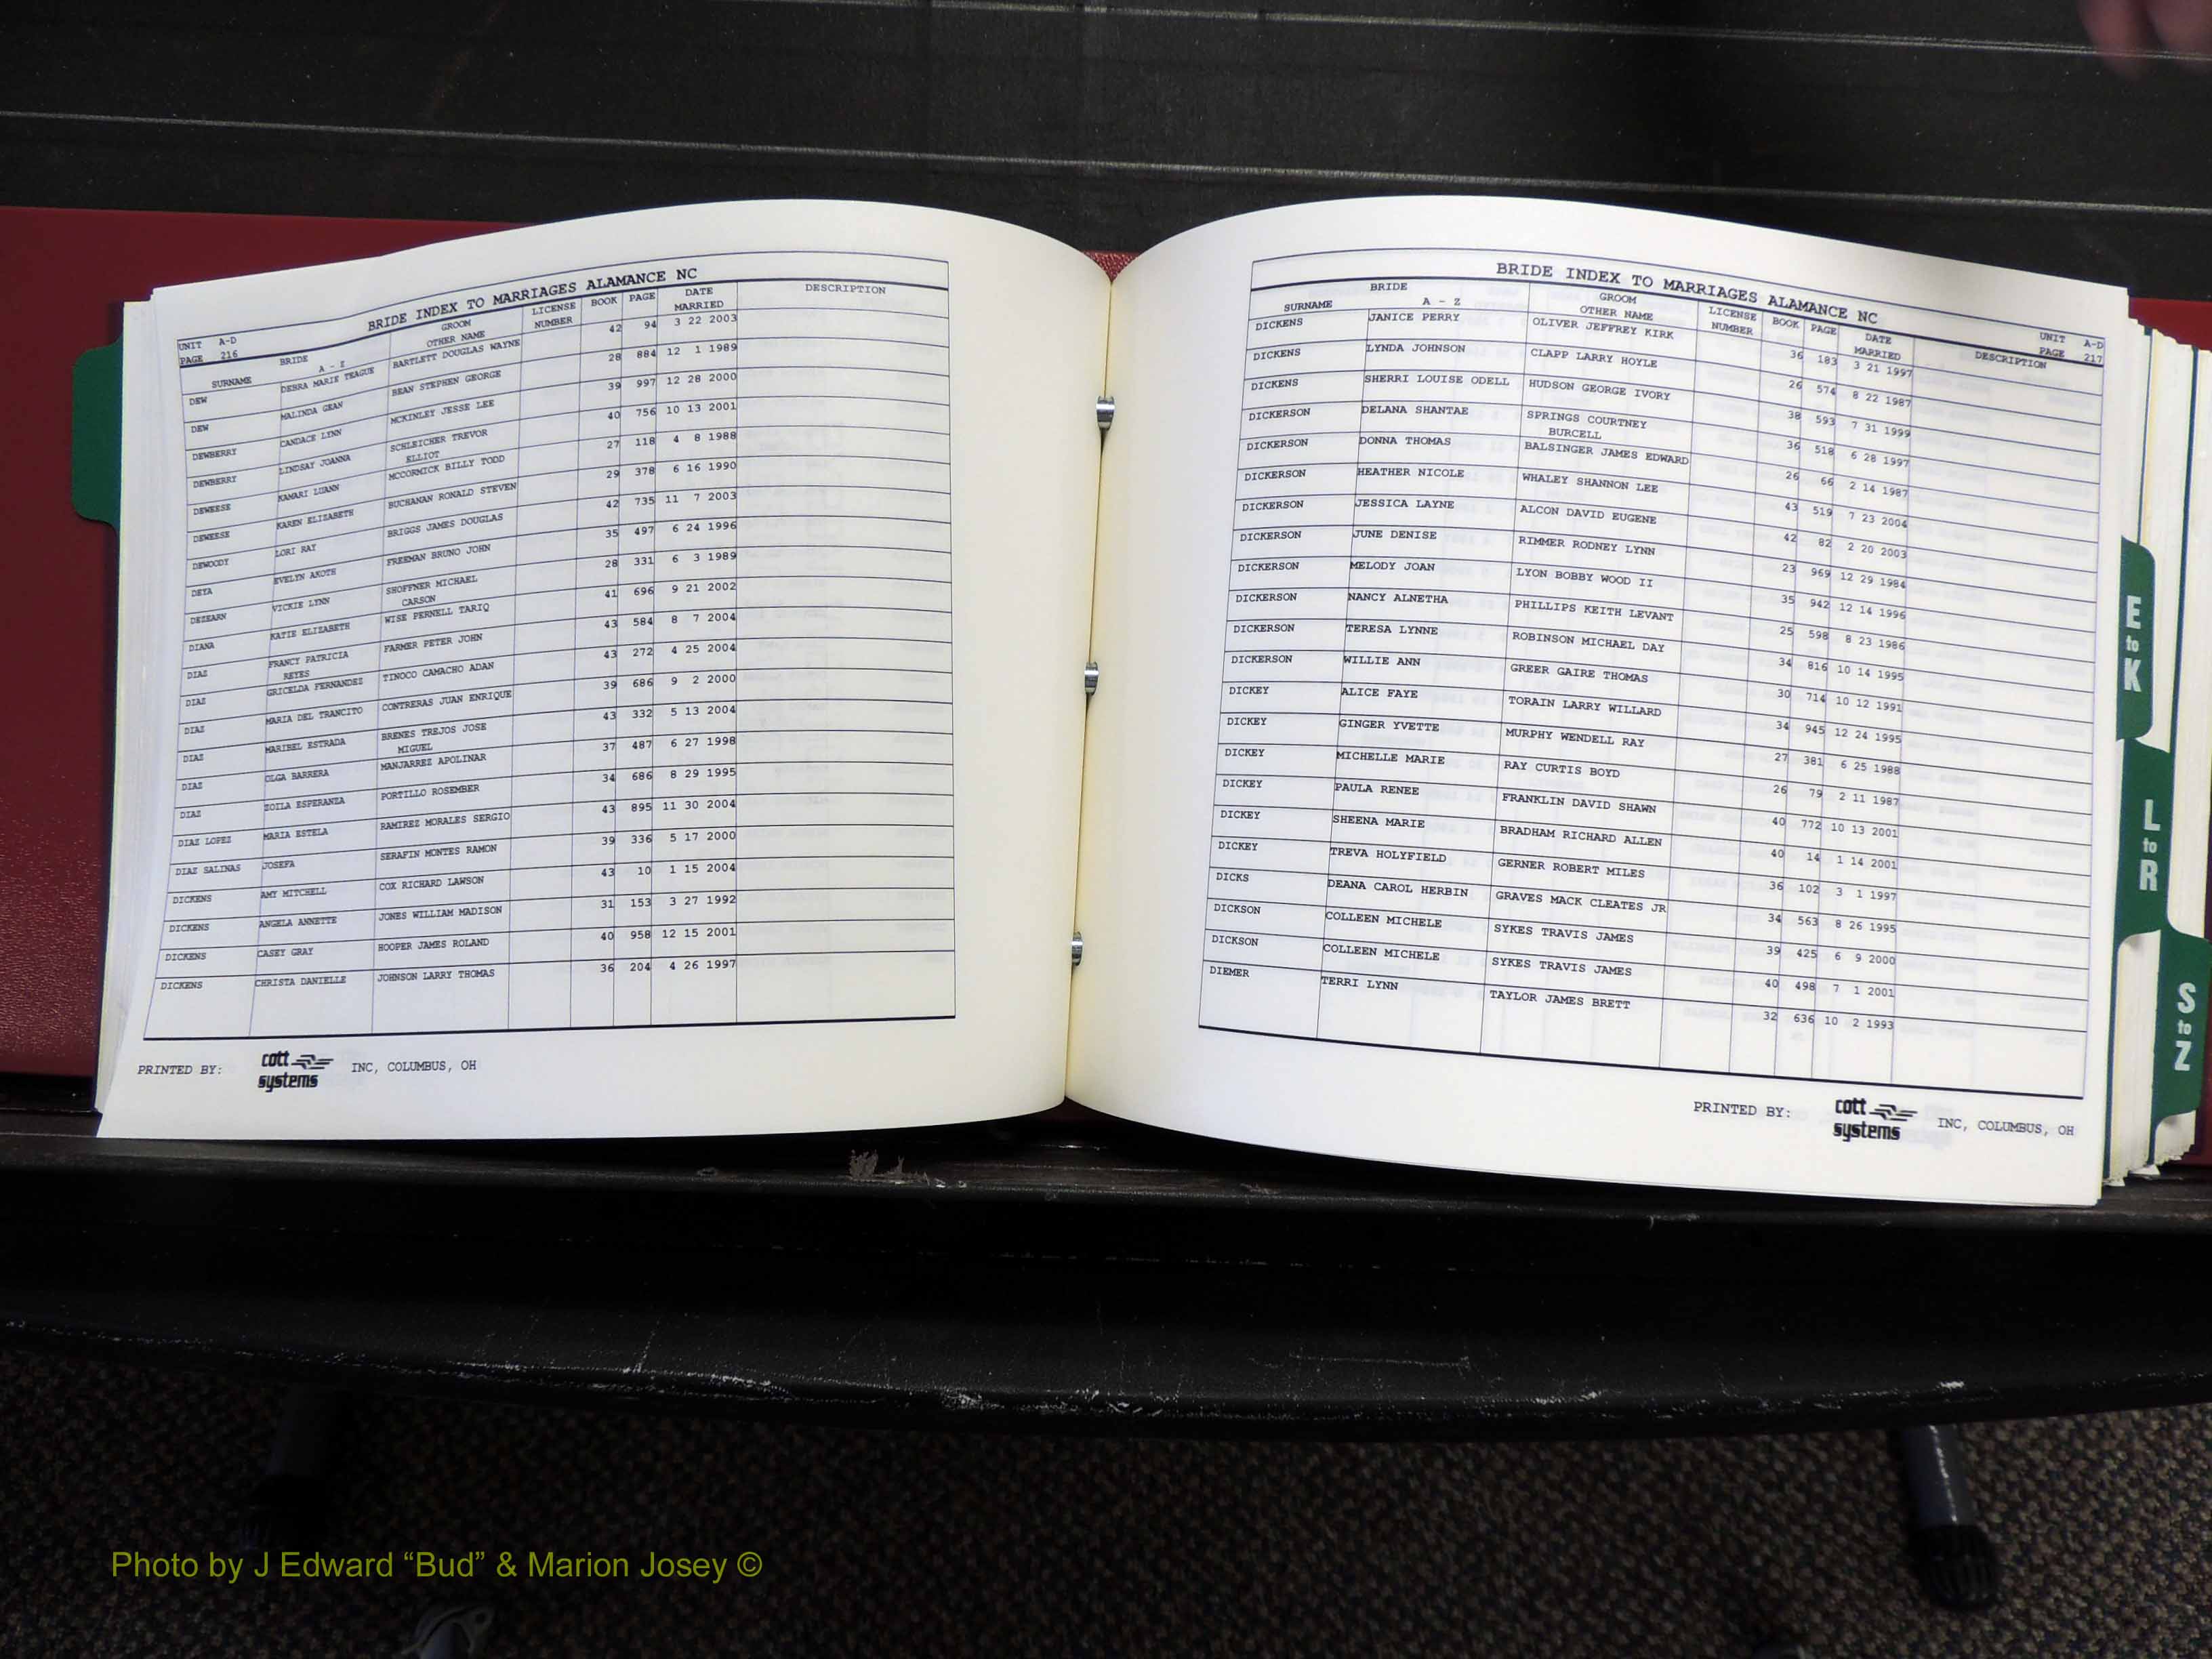 BRIDE INDEX TO MARRIAGES ALAMANCE NC
UNIT A-D
PAGE 216
BRIDE GROOM LICENSE BOOK PAGE DATE DESCRIPTION
SURNAME A - Z OTHER NAME NUMBER MARRIED
DEW DEBRA MARIE TEAGUE BARTLETT DOUGLAS WAYNE 42 94 3 22 2003
DEW MALINDA GEAN BEAN STEPHEN GEORGE 28 884 12 1 1989
DEWBERRY CANDACE LYNN MCKINLEY JESSE LEE 39 997 12 28 2000
DEWBERRY LINDSAY JOANNA SCHLEICHER TREVOR 40 756 10 13 2001
ELLIOT
DEWEESE KAMARI LUANN MCCORMICK BILLY TODD 27 118 4 8 1988
DEWEESE KAREN ELIZABETH BUCHANAN RONALD STEVEN 29 378 6 16 1990
DEWOODY LORI RAY BRIGGS JAMES DOUGLAS 42 735 11 7 2003
DEYA EVELYN AKOTH FREEMAN BRUNO JOHN 35 497 6 24 1996
DEZEARN VICKIE LYNN SHOFFNER MICHAEL 28 331 6 3 1989
CARSON
DIANA KATIE ELIZABETH WISE PERNELL TARIQ 41 696 9 21 2002
DIAZ FRANCY PATRICIA FARMER PETER JOHN 43 584 8 7 2004
REYES
DIAZ GRICELDA FERNANDEZ TINOCO CAMACHO ADAN 43 272 4 25 2004
DIAZ MARIA DEL TRANCITO CONTRERAS JUAN ENRIQUE 39 686 9 2 2000
DIAZ MARIBEL ESTRADA BRENES TREJOS JOSE 43 332 5 13 2004
MIGUEL
DIAZ OLGA BARRERA MANJARREZ APOLINAR 37 487 6 27 1998
DIAZ ZOILA ESPERANZA PORTILLO ROSEMBER 34 686 8 29 1995
DIAZ LOPEZ MARIA ESTELA RAMIREZ MORALES SERGIO 43 895 11 30 2004
DIAZ SALINAS JOSEFA SERAFIN MONTES RAMON 39 336 5 17 2000
DICKENS AMY MITCHELL COX RICHARD LAWSON 43 10 1 15 2004
DICKENS ANGELA ANNETTE JONES WILLIAM MADISON 31 153 3 27 1992
DICKENS CASEY GRAY HOOPER JAMES ROLAND 40 958 12 15 2001
DICKENS CHRISTA DANIELLE JOHNSON LARRY THOMAS 36 204 4 26 1997
PRINTED BY: cott systems INC, COLUMBUS, OH
BRIDE INDEX TO MARRIAGES ALAMANCE NC
UNIT A-D
PAGE 217
BRIDE GROOM LICENSE BOOK PAGE DATE DESCRIPTION
SURNAME A - Z OTHER NAME NUMBER MARRIED
DICKENS JANICE PERRY OLIVER JEFFREY KIRK 36 183 3 21 1997
DICKENS LYNDA JOHNSON CLAPP LARRY HOYLE 26 574 8 22 1987
DICKENS SHERRI LOUISE ODELL HUDSON GEORGE IVORY 38 593 7 31 1999
DICKERSON DELANA SHANTAE SPRINGS COURTNEY 36 518 6 28 1997
BURCELL
DICKERSON DONNA THOMAS BALSINGER JAMES EDWARD 26 66 2 14 1987
DICKERSON HEATHER NICOLE WHALEY SHANNON LEE 43 519 7 23 2004
DICKERSON JESSICA LAYNE ALCON DAVID EUGENE 42 82 2 20 2003
DICKERSON JUNE DENISE RIMMER RODNEY LYNN 23 969 12 29 1984
DICKERSON MELODY JOAN LYON BOBBY WOOD II 35 942 12 14 1996
DICKERSON NANCY ALNETHA PHILLIPS KEITH LEVANT 25 598 8 23 1986
DICKERSON TERESA LYNNE ROBINSON MICHAEL DAY 34 816 10 14 1995
DICKERSON WILLIE ANN GREER GAIRE THOMAS 30 714 10 12 1991
DICKEY ALICE FAYE TORAIN LARRY WILLARD 34 945 12 24 1995
DICKEY GINGER YVETTE MURPHY WENDELL RAY 27 381 6 25 1988
DICKEY MICHELLE MARIE RAY CURTIS BOYD 26 79 2 11 1987
DICKEY PAULA RENEE FRANKLIN DAVID SHAWN 40 772 10 13 2001
DICKEY SHEENA MARIE BRADHAM RICHARD ALLEN 40 14 1 14 2001
DICKEY TREVA HOLYFIELD GERNER ROBERT MILES 36 102 3 1 1997
DICKS DEANA CAROL HERBIN GRAVES MACK CLEATES JR 34 563 8 26 1995
DICKSON COLLEEN MICHELE SYKES TRAVIS JAMES 39 425 6 9 2000
DICKSON COLLEEN MICHELE SYKES TRAVIS JAMES 40 498 7 1 2001
DIEMER TERRI LYNN TAYLOR JAMES BRETT 32 636 10 2 1993
PRINTED BY: cott systems INC, COLUMBUS, OH
E to K
L to R
S to Z
Photo by J Edward “Bud” & Marion Josey ©